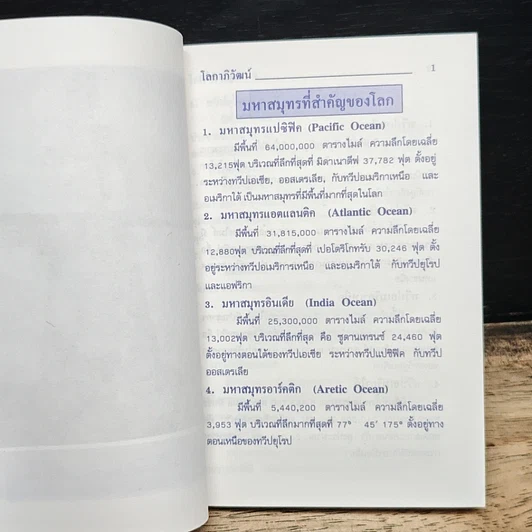 โลกาภิวัฒน์ 1
มหาสมุทรที่สำคัญของโลก
1. มหาสมุทรแปซิฟิค (Pacific Ocean)
มีพื้นที่ 64,000,000 ตารางไมล์ ความลึกโดยเฉลี่ย
13,215ฟุต บริเวณที่ลึกที่สุดที่ มิดาเนาดีฟ 37,782 ฟุต ตั้งอยู่
ระหว่างทวีปเอเซีย, ออสเตรเลีย, กับทวีปอเมริกาเหนือ และ
อเมริกาใต้ เป็นมหาสมุทรที่มีพื้นที่มากที่สุดในโลก
2. มหาสมุทรแอตแลนติค (Atlantic Ocean)
มีพื้นที่ 31,815,000 ตารางไมล์ ความลึกโดยเฉลี่ย
12,880ฟุต บริเวณที่ลึกที่สุดที่ เปอโตริโกทรับ 30,246 ฟุต ตั้ง
อยู่ระหว่างทวีปอเมริการเหนือ และอเมริกาใต้ กับทวีปยุโรป
และแอฟริกา
3. มหาสมุทรอินเดีย (India Ocean)
มีพื้นที่ 25,300,000 ตารางไมล์ ความลึกโดยเฉลี่ย
13,002ฟุต บริเวณที่ลึกที่สุด คือ ซูดานเทรนซ์ 24,460 ฟุต
ตั้งอยู่ทางตอนใต้ของทวีปเอเชีย ระหว่างทวีปแปซิฟิค กับทวีป
ออสเตรเลีย
4. มหาสมุทรอาร์คติก (Aretic Ocean)
มีพื้นที่ 5,440,200 ตารางไมล์ ความลึกโดยเฉลี่ย
3,953 ฟุต บริเวณที่ลึกมากที่สุดที่ 77° 45' 175° ตั้งอยู่ทาง
ตอนเหนือของทวีปยุโรป